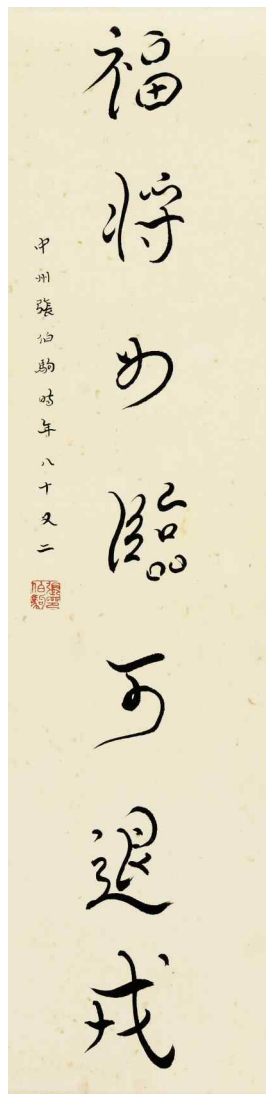 福将如临可退戎
中州張伯駒時年八十又二
張伯駒印